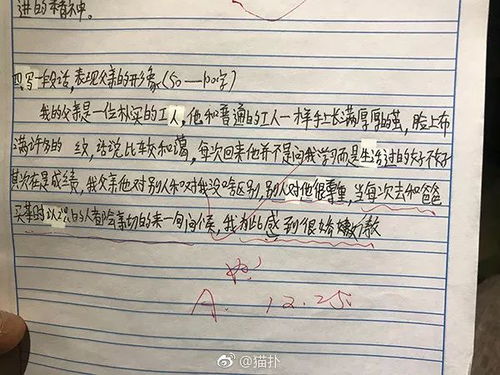 进的精神。
四.写一段话,表现父亲的形象(50—100字)
我的父亲是一位朴实的工人,他和普通的工人一样手上长满厚厚的茧,脸上布
满许多的 纹,话说比较和蔼,每次回来他并不是问我学习而是生活过的好不好
其次在是成绩,我父亲他对别人和对我没啥区别,别人对他很尊重,当每次去和爸爸
买菜时认识的人都会亲切的来一句问候,我为此感到很骄傲
A. 12.25
@猫扑